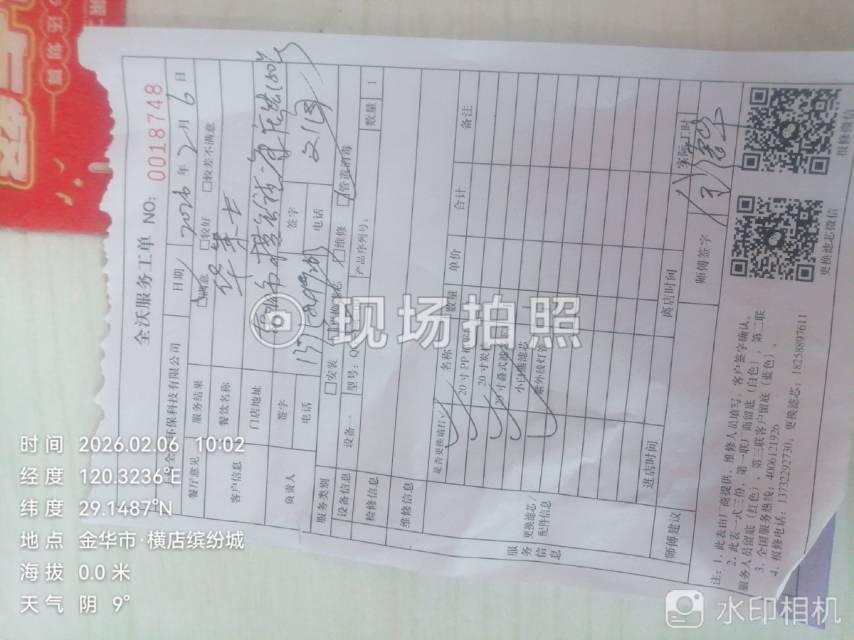 全沃服务工单 NO: 0018748
环保科技有限公司 日期: 2026年2月6日
餐厅意见 服务结果 满意 □较好 □较差不满意
客户信息 餐饮名称 华莱士
门店地址
负责人 签字 签字
电话 电话
服务类别 □安装 □维修 □管道消毒
设备信息 设备 型号: 产品序列号: 数量 1
检修信息
维修信息
服务信息 更换滤芯/配件信息 是否更换请打√ 名称 数量 单价 合计 备注
20寸PP棉
20寸炭
20寸叠式
小白 滤芯
紫外线灯管
进店时间 离店时间 实际工时
师傅建议 师傅签字
注: 1、此表由厂商提供, 维修人员填写, 客户签字确认。
2、此表一式三份, 第一联厂商留底(白色), 第二联
服务人员留底(红色), 第三联客户留底(蓝色)。
3、全国服务热线: 4006121926
4、报修电话: 13732292730; 更换滤芯: 18258897611
更换滤芯微信
报修微信
现场拍照
时间 2026.02.06 10:02
经度 120.3236°E
纬度 29.1487°N
地点 金华市·横店缤纷城
海拔 0.0米
天气 阴 9°
水印相机